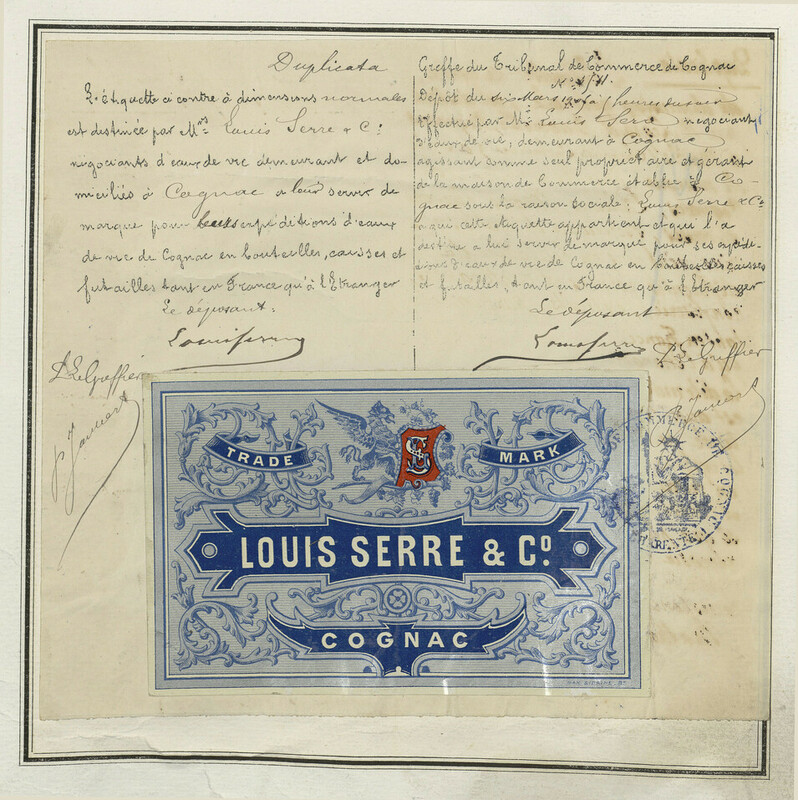 Duplicata
L'étiquette ci contre à dimensions normales
est destinée par Mrs Louis Serre & Cie
négociants d'eaux de vie demeurant et do-
miciliés à Cognac a leur servir de
marque pour leurs expéditions d'eaux
de vie de Cognac en bouteilles, caisses et
futailles tant en France qu'à l'Etranger
Le déposant:
Louis Serre
P. Le Greffier
Greffe du Tribunal de Commerce de Cognac
Dépôt du six Mars heures du soir
Effectué par Mr Louis Serre négociant
d'eaux de vie, demeurant à Cognac
agissant comme seul propriétaire et gérant
de la maison de Commerce établie à Co-
gnac sous la raison sociale: Louis Serre & Cie
a qui cette étiquette appartient et qui l'a
destine a lui servir de marque pour ses expédi-
tions d'eaux de vie de Cognac en bouteilles, caisses
et futailles, tant en France qu'à l'Etranger
Le déposant
Louis Serre
P. Le Greffier
TRADE
LS
MARK
LOUIS SERRE & Co.
COGNAC
COMMERCE DE COGNAC
CHARENTE